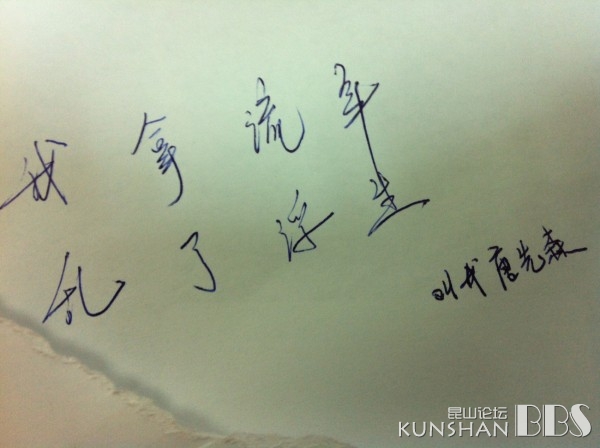 我拿流年
乱了浮生
叫我唐先森
昆山论坛
KUNSHAN BBS